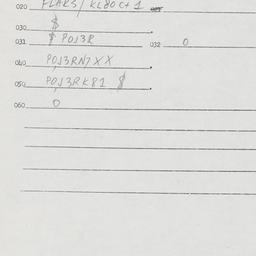 020 FLARS/KL80C+1
030 $
031 $ P0J3R 032 0
040 P0J3RN7XX
050 P0J3RK81 $
060 0